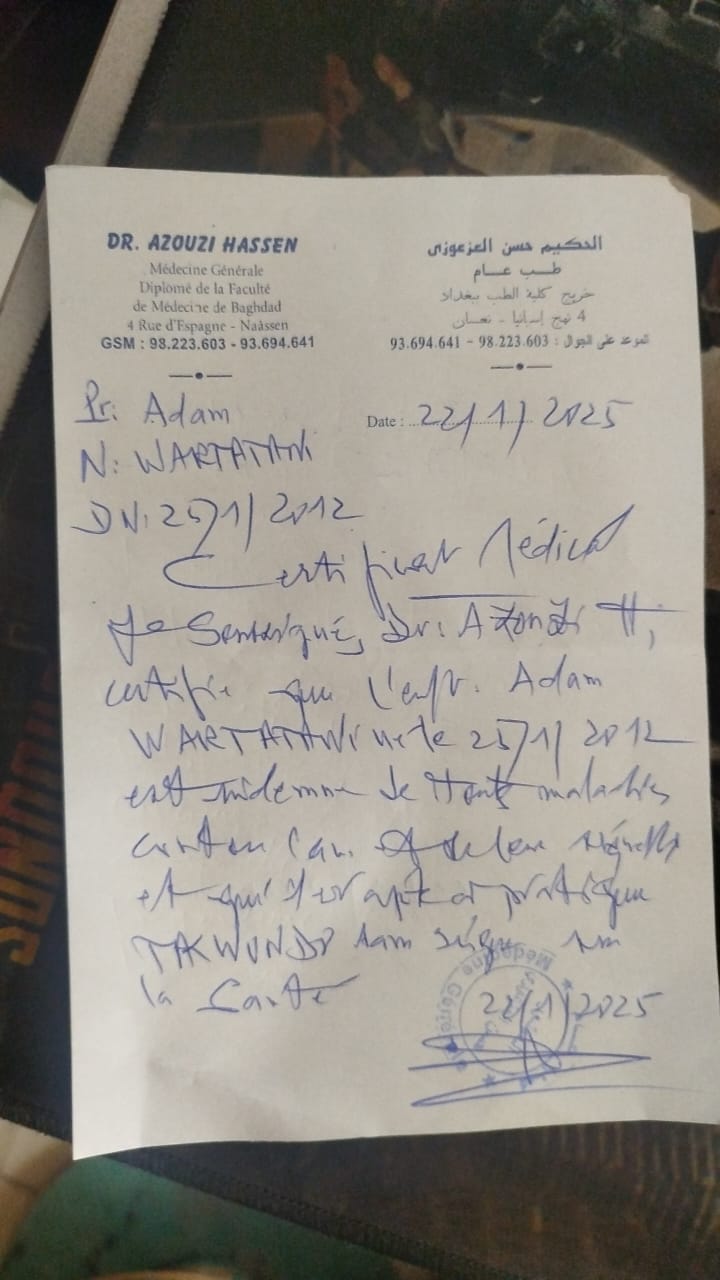 DR. AZOUZI HASSEN
Médecine Générale
Diplomé de la Faculté
de Médecine de Baghdad
4 Rue d'Espagne - Naâssen
GSM : 98.223.603 - 93.694.641
الحكيم حسن العزعوزي
طب عام
خريج كلية الطب ببغداد
4 نهج إسبانيا - نعسان
الموعد على الجوال : 98.223.603 - 93.694.641
Pr: Adam
Date : 22/1/2025
N: WARTATANI
DN: 25/1/2012
Certificat Médical
Je Soussigné, Dr: AZOUZI H,
certifie que l'enf. Adam
WARTATANI né le 25/1/2012
est indemne de toute maladies
et qu'il est apte à pratiquer
TAKWUNDO
la Santé
22/1/2025
Médecine Générale